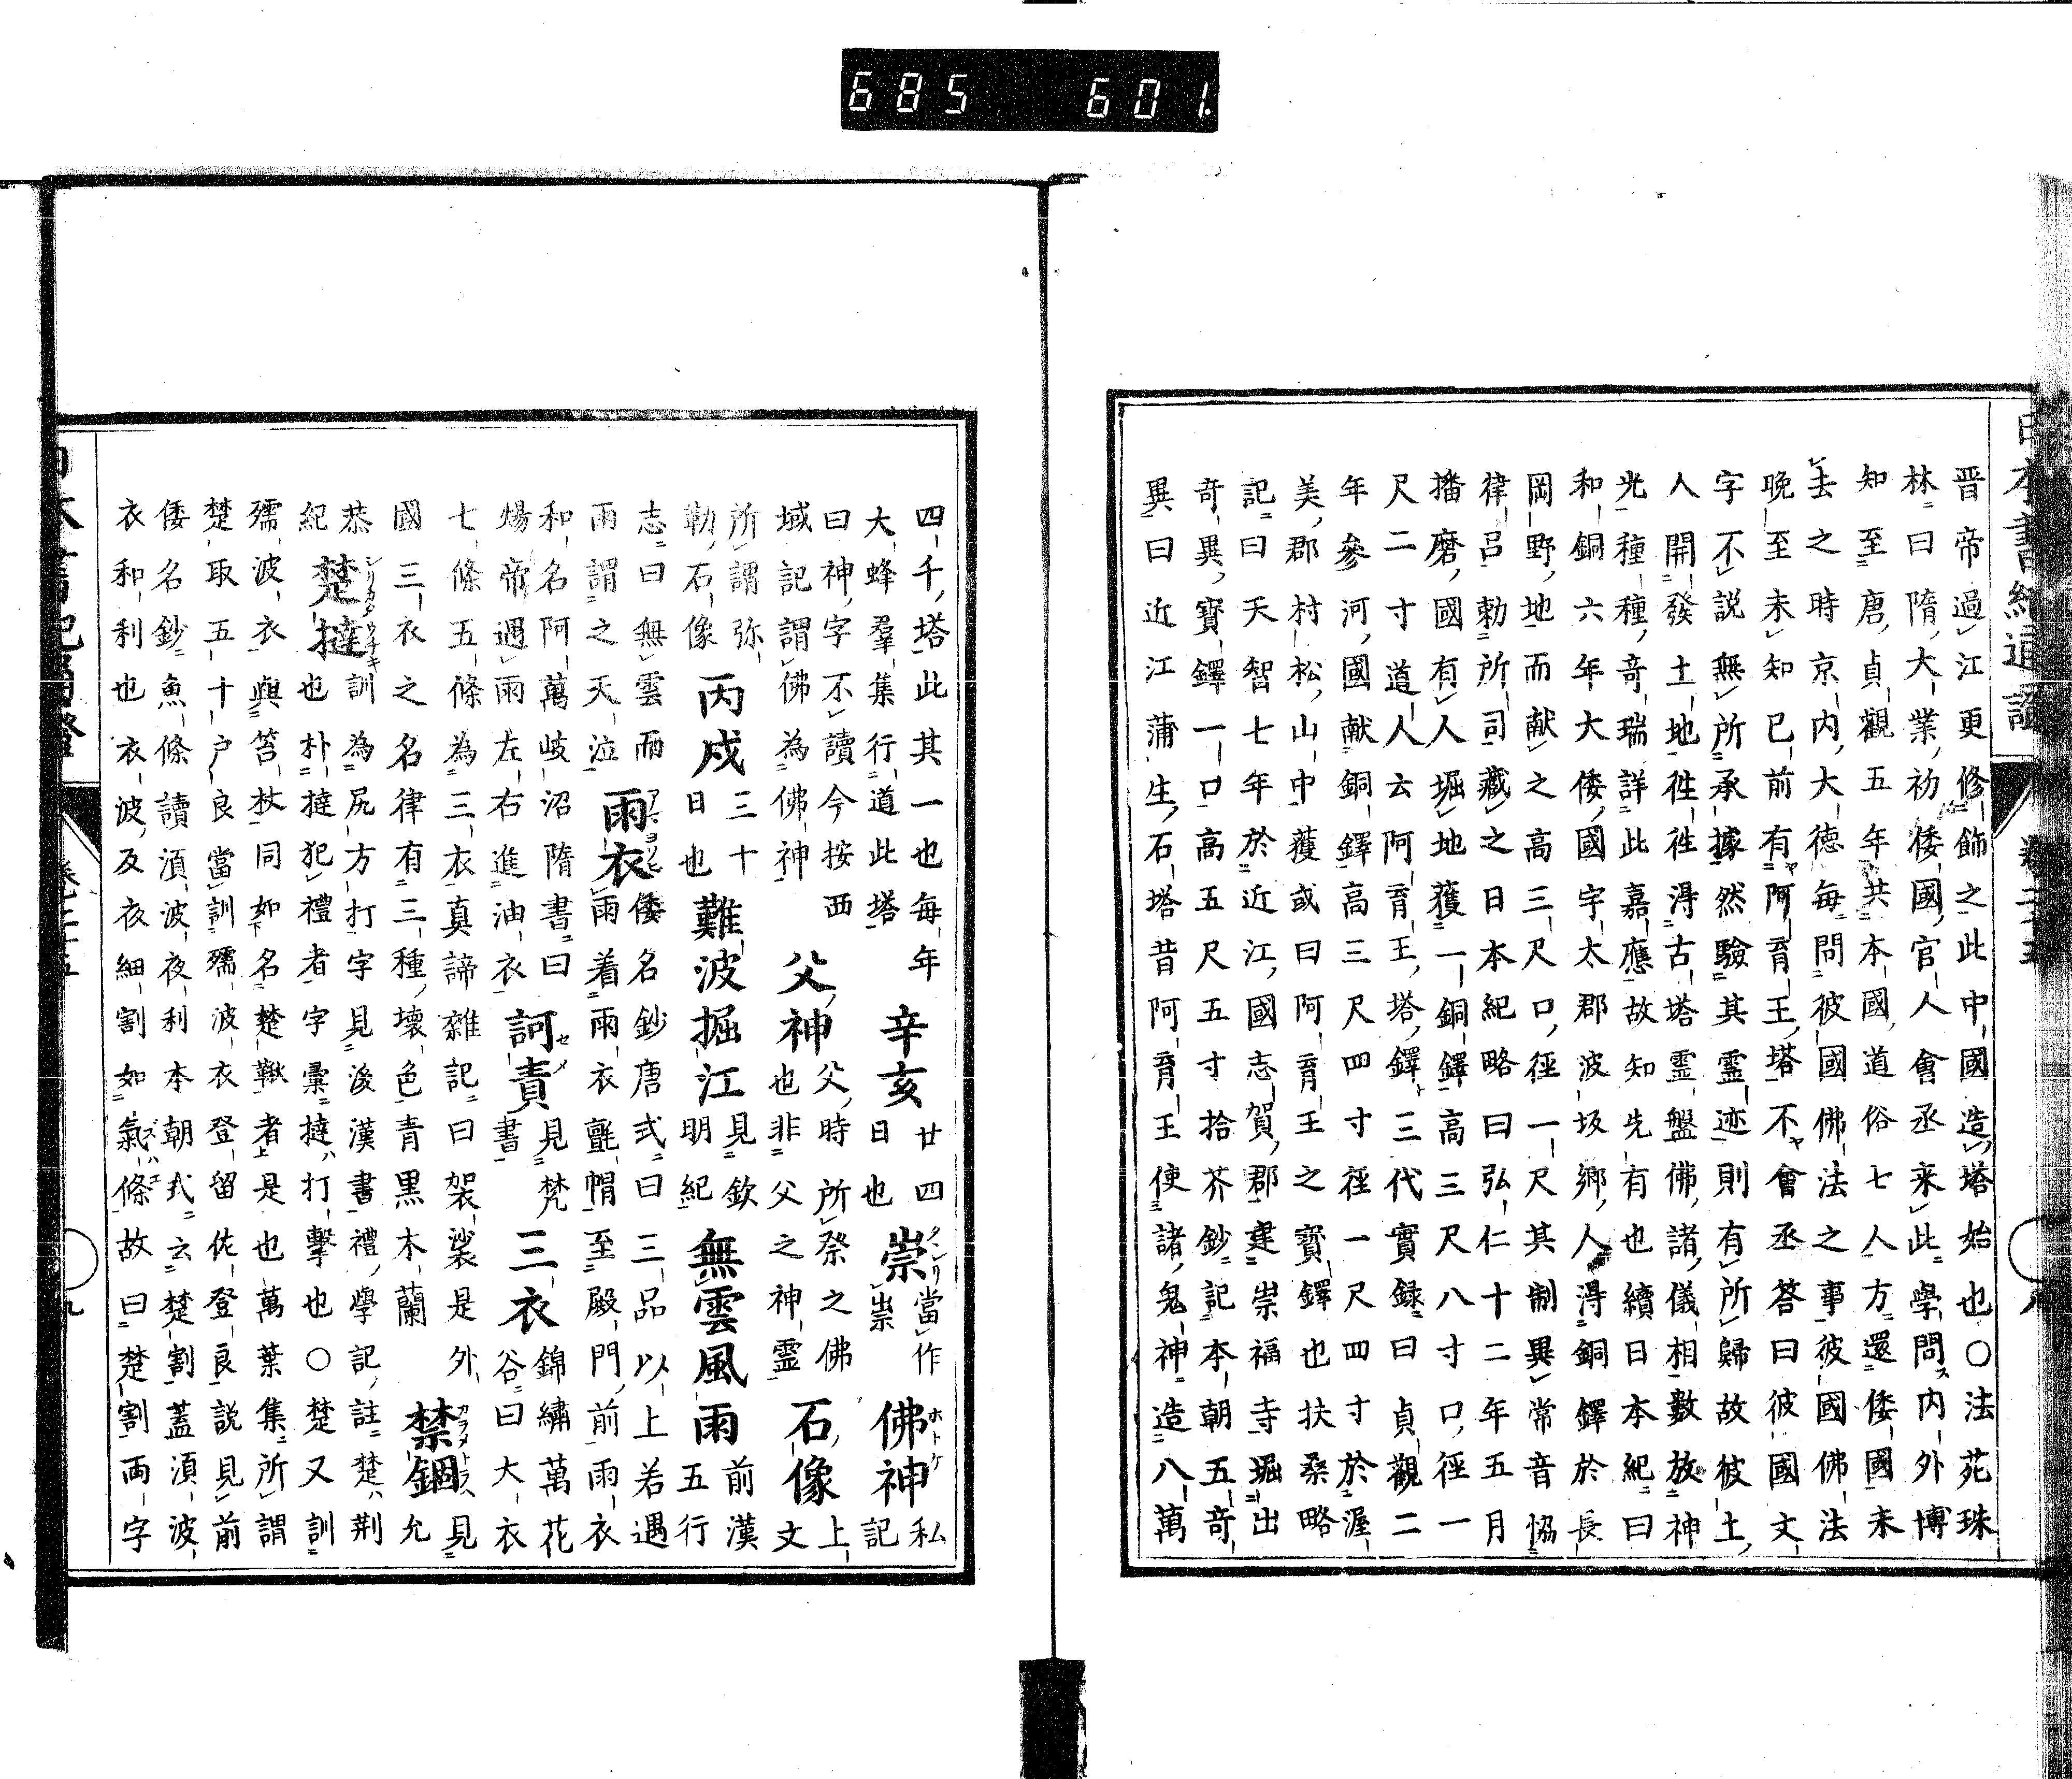 685 601
晋帝過江更修飾之此中國造塔始也○法苑珠
林曰隋大業初倭國官人會丞来此學問内外博
知至唐貞觀五年共本國道俗七人方還倭國未
去之時京内大德毎問彼國佛法之事彼國佛法
晚至未知已前有阿育王塔不會丞答曰彼國文
字不説無所承據然驗其霊迹則有所歸故彼土
人開發土地徃徃淂古塔霊盤佛諸儀相數放神
光種種奇瑞詳此嘉應故知先有也續日本紀曰
和銅六年大倭國宇太郡波坂郷人淂銅鐸於長
岡野地而献之高三尺口徑一尺其制異常音恊
律呂勅所司藏之日本紀略曰弘仁十二年五月
播磨國有人堀地獲一銅鐸高三尺八寸口徑一
尺二寸道人云阿育王塔鐸三代實録曰貞觀二
年參河國献銅鐸高三尺四寸徑一尺四寸於渥
美郡村松山中蒦或曰阿育王之寶鐸也扶桑略
記曰天智七年於近江國志賀郡建崇福寺堀出
奇異寶鐸一口高五尺五寸拾芥鈔記本朝五奇
異曰近江蒲生石塔昔阿育王使諸鬼神造八萬
四千塔此其一也毎年 辛亥 廿四 崇 當作 佛神 私
大蜂羣集行道此塔 日也 祟 記
曰神字不讀今按西 父神 父時所祭之佛 石像 上
域記謂佛為佛神 也非父之神霊 文
所謂弥 丙戍 三十 難波掘江 見欽 無雲風雨 前漢
勒石像 日也 明紀 五行
志曰無雲而 雨衣 倭名鈔唐式曰三品以上若遇
雨謂之天泣 雨着雨衣氈帽至殿門前雨衣
和名阿萬岐沼隋書曰 訶責 見梵 三衣 錦繡萬花
煬帝遇雨左右進油衣 書 谷曰大衣
七條五條為三衣真諦雜記曰袈裟是外 禁錮 見
國三衣之名律有三種壊色青黒木蘭 允
恭 楚撻 訓為尻方打字見後漢書禮學記註楚荆
紀 也朴撻犯禮者字彙撻打擊也○楚又訓
殦波衣與笞杖同如名楚鞦者是也萬葉集所謂
楚取五十戸良當訓殦波衣登留佐登良説見前
倭名鈔魚條讀湏波夜利本朝式云楚割蓋湏波
衣和利也衣波及衣細割如氣條故曰楚割両字